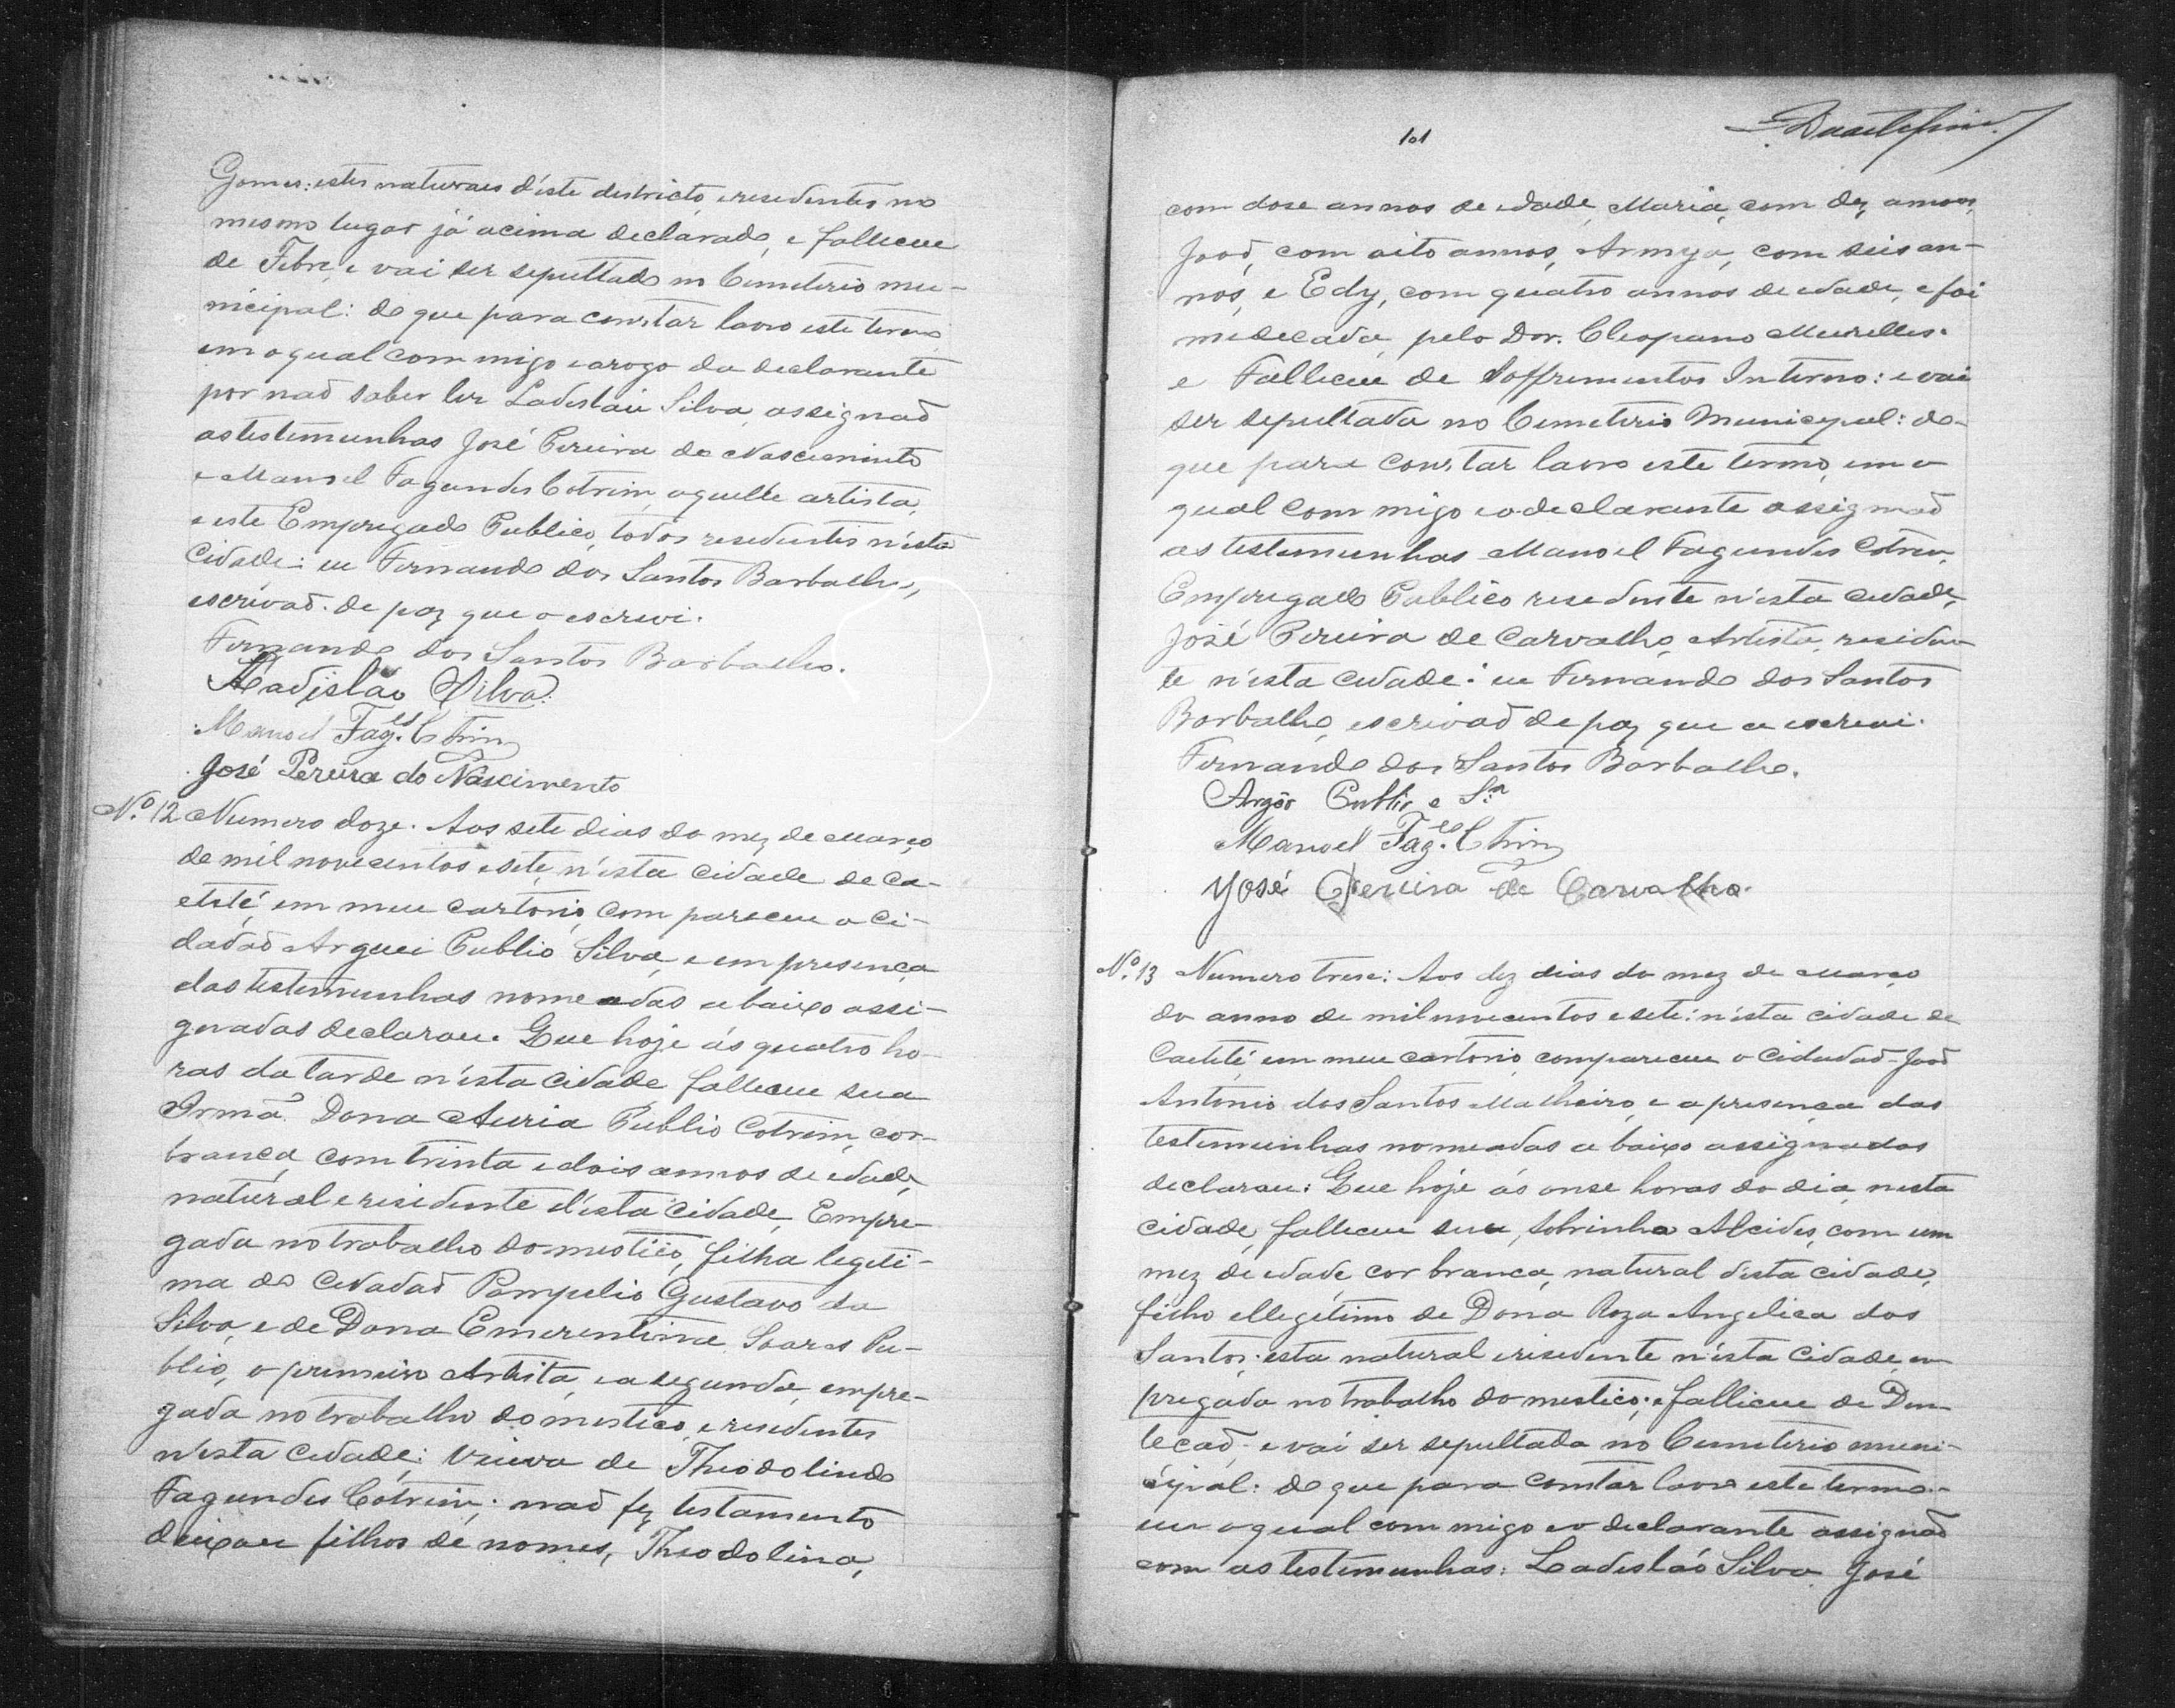 Gomes: estes naturaes d'este districto, e residentes no
mesmo lugar já acima declarado, e falleceu
de Febre, e vai ser sepultado no Cemeterio mu-
nicipal: do que para constar lavro este termo
em o qual commigo e arogo da declarante
por naõ saber ler Ladislaü Silva, assignaõ
as testemunhas José Pereira do Nascimento
e Manoel Fagundes Cotrim, aquelle artista,
e este Empregado Publico, todos residentes n'esta
Cidade: eu Fernando dos Santos Barbalho,
escrivaõ de paz que o escrevi.
Fernando dos Santos Barbalho.
Ladislão Silva.
Manoel Fag.es Cotrim
José Pereira do Nascimento
Nº. 12 Numero doze. Aos sete dias do mez de Março
de mil novecentos e sete, n'esta cidade de Ca-
eteté, em meu cartorio, compareceu o Ci-
dadaõ Publio Silva, e em presença
das testemunhas nomeadas abaixo assi-
gnadas declarou. Que hoje ás quatro ho-
ras da tarde n'esta Cidade falleceu sua
Irmã Dona Auria Publio Cotrim, cor-
branca, com trinta e dois annos de edade,
natural e residente d'esta Cidade, Empre-
gada no trabalho domestico, filha legiti-
ma do Cidadaõ Pompilio Gustavo da
Silva, e de Dona Emerentina Soares Pu-
blio, o primeiro Artista, e a segunda, empre-
gada no trabalho domestico, e residentes
n'esta Cidade: Viuva de Theodolindo
Fagundes Cotrim; naõ fez testamento
deixou filhos de nomes, Theodolina,
101
com dose annos de edade, Maria, com dez annos,
Joaõ, com oito annos, com seis an-
nos, e Edy, com quatro annos de edade, e foi
medecada pelo Dor. Meirelles.
e Falleceu de Soffrimentos Interno: e vai
ser sepultada no Cemeterio Municipal: do-
que para constar lavro este termo, em o
qual commigo e o declarante assignaõ
as testemunhas Manoel Fagundes Cotrim,
Empregado Publico residente n'esta cidade,
José Pereira de Carvalho, Artista, residen-
te n'esta cidade: eu Fernando dos Santos
Barbalho, escrivaõ de paz que o escrevi.
Fernando dos Santos Barbalho.
Publio e S.a
Manoel Fag.es Cotrim
José Pereira de Carvalho.
Nº. 13 Numero trese: Aos dez dias do mez de Março
do anno de mil novecentos e sete: n'esta cidade de
Caeteté, em meu cartorio, compareceu o Cidadaõ Joaõ
Antonio dos Santos Malheiro, e a presença das
testemunhas nomeadas abaixo assignadas
declarou: Que hoje ás onse horas do dia, nesta
cidade, falleceu seu sobrinho Alcides, com um
mez de edade, cor branca, natural d'esta cidade,
filho ellegetimo de Dona Roza Angelica dos
Santos: esta natural e residente n'esta Cidade, em
pregada no trabalho domestico; e falleceu de Den-
tecaõ, e vai ser sepultado no Cemeterio muni-
cipal: do que para constar lavro este termo.
em o qual commigo e o declarante assignaõ
com as testemunhas: Ladislaó Silva. José